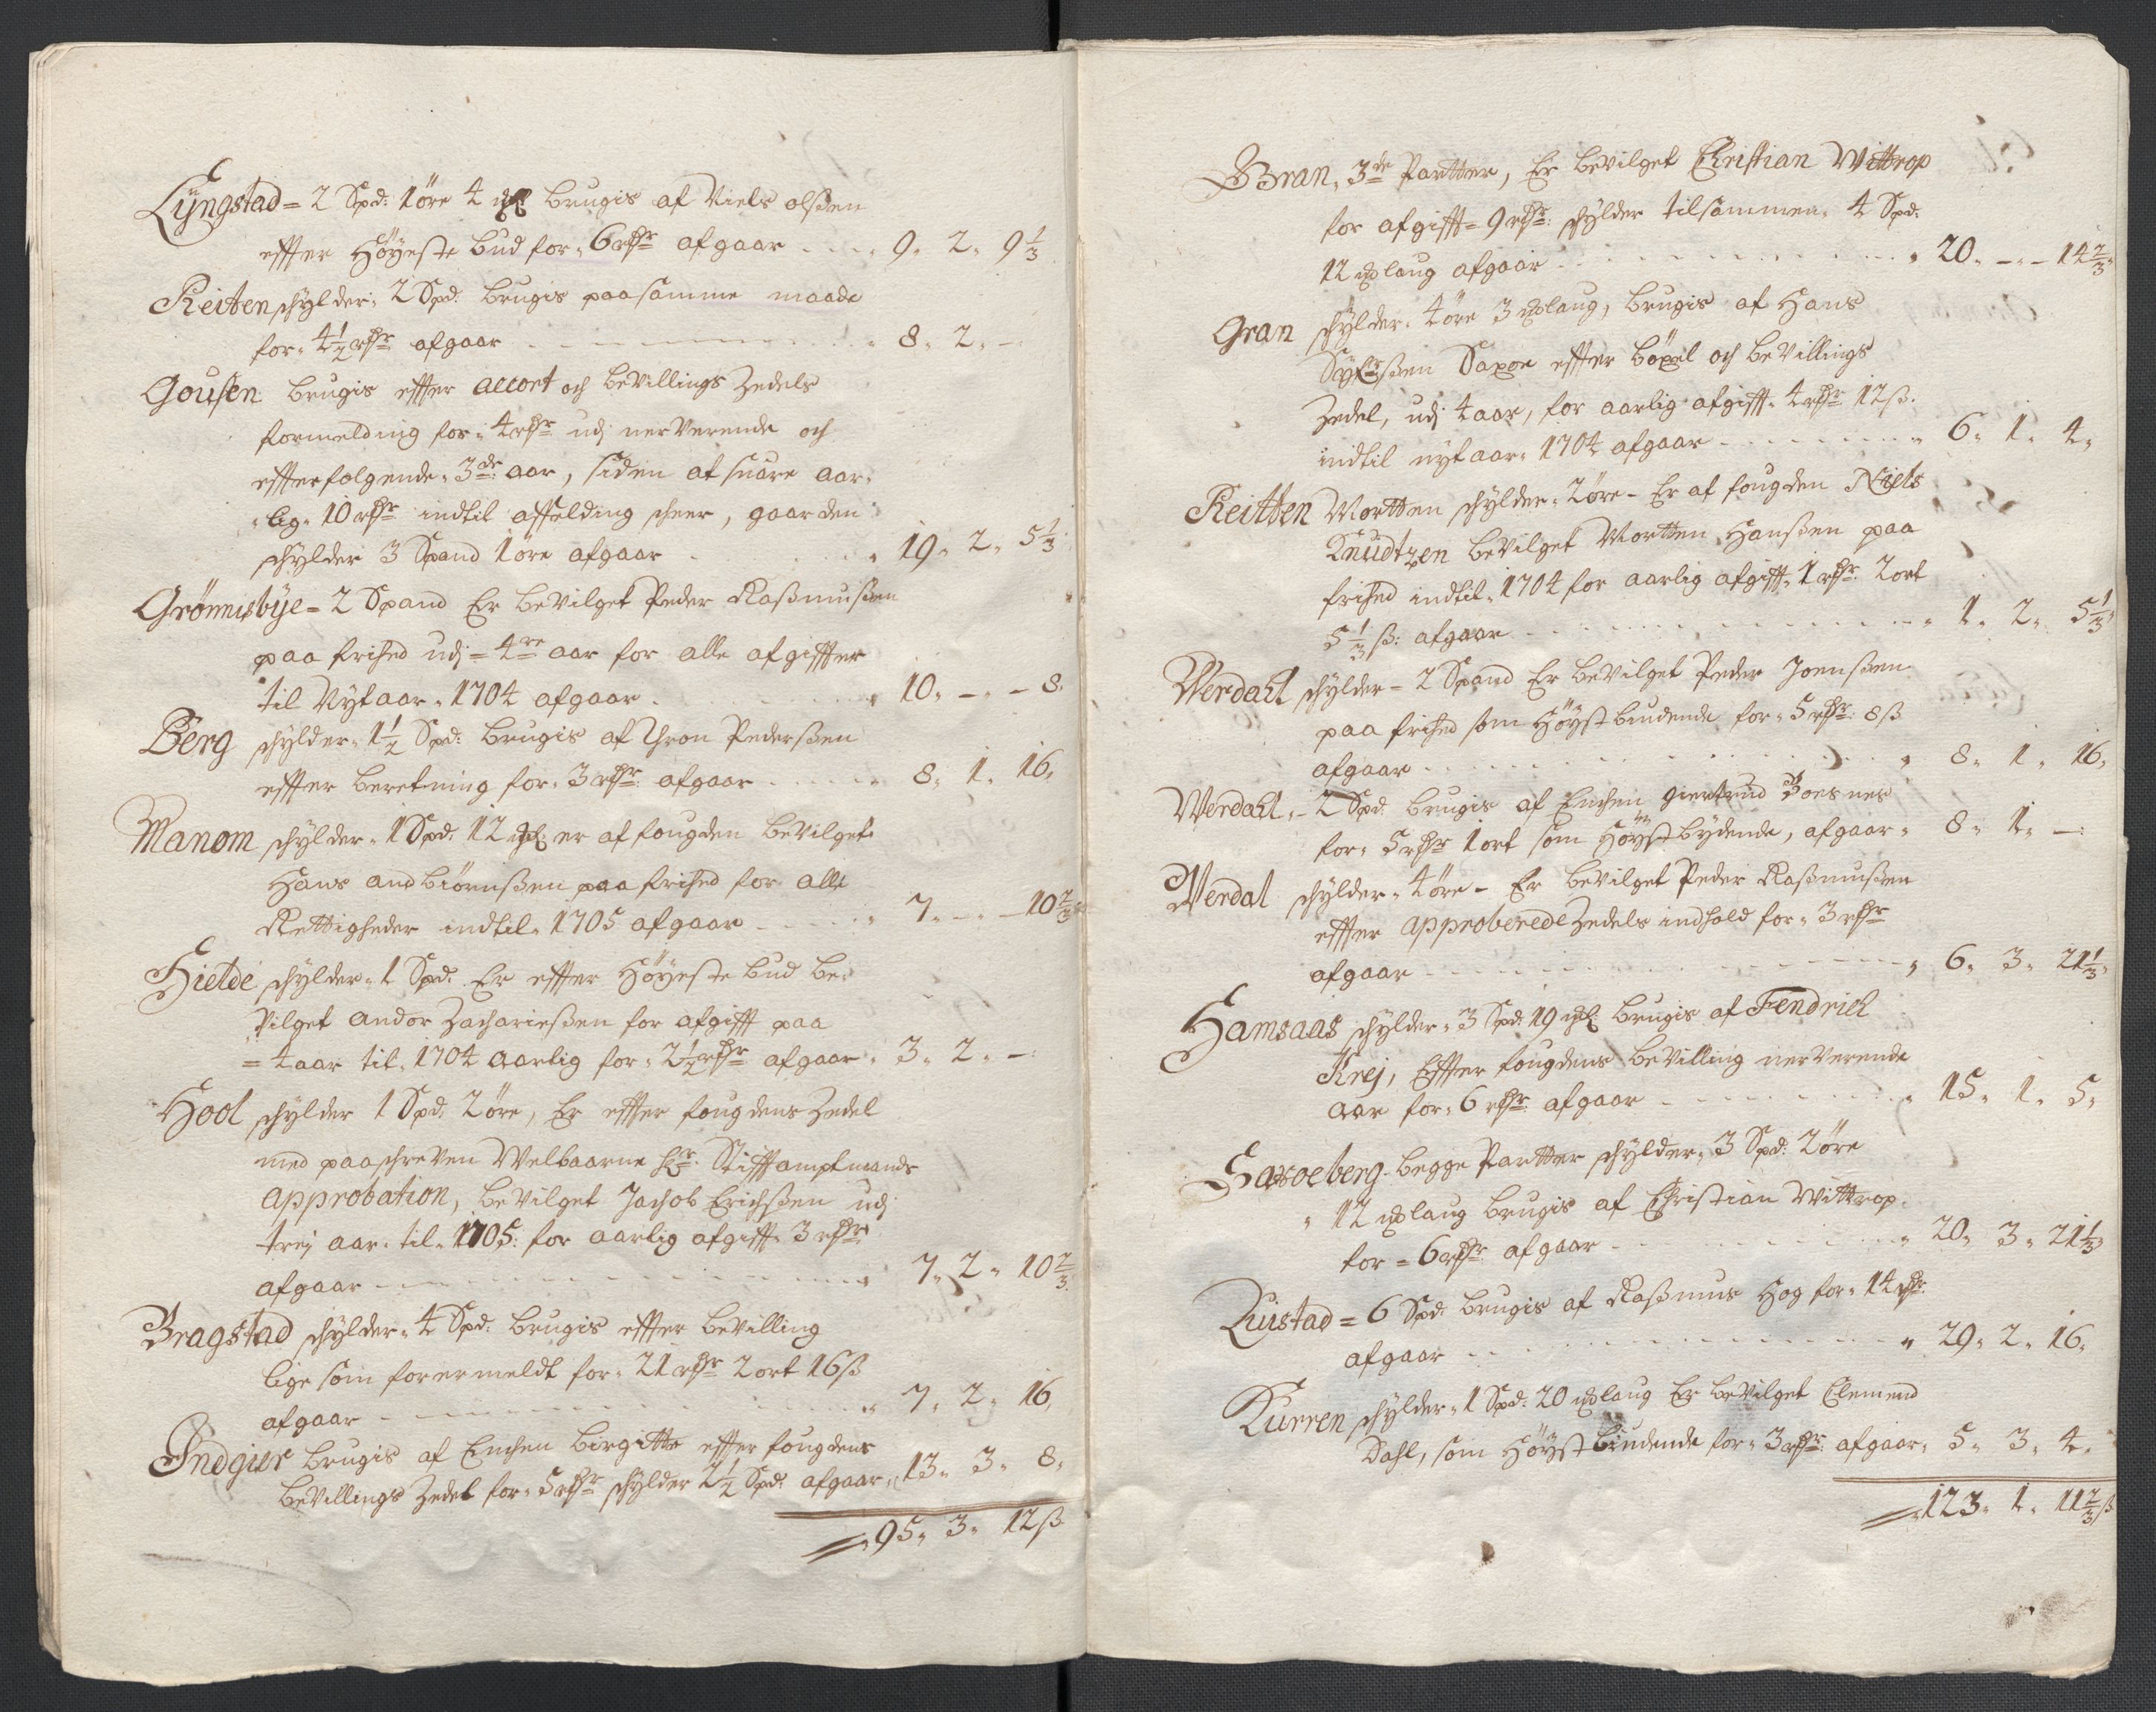 Lyngstad = 2 Spd: 1 öre 4 mkl brugis af Niels olsßen
effter Höyeste bud for „ 6 rdr afgaar „ 9 „ 2 „ 9 1/3
Reitten schylder „ 2 Spd: brugis paa samme maade
for „ 4 1/2 rdr afgaar „ 8 „ 2 „ –
Gousen brugis effter accort och beVillings Zedels
formelding for „ 4 rdr udj nerVerende och
effterfolgende „ 3de aar, siden at suare aar,
lig „ 10 rdr indtil affelding scheer, gaarden
schylder 3 Spand 1 öre afgaar „ 19 „ 2 „ 5 1/3
Grönnisbÿe = 2 Spand Er beVilget Peder Raßmußen
paa frihed udj = 4re aar for alle afgiffter
til Nytaar „ 1704 afgaar „ 10 „ – „ – 8
Berg schylder „ 1 1/2 Spd: brugis af Thron Pederßen
effter beretning for „ 3 rdr: afgaar „ 8 „ 1 „ 16,
Manom schylder „ 1 Spd: 12 mkl: er af fougden beVilget
Hans andbiörnßen paa frihed for alle
Rettigheder indtil „ 1705 afgaar „ 7 „ – „ – 10 2/3
Hielde schylder „ 1 Spd: Er effter Höyeste bud be„
Vilget andor Zacharießen for afgifft paa
= 4 aar til „ 1704 aarlig for „ 2 1/2 rdr afgaar „ 3 „ 2 „ –
Hool schylder 1 Spd: 2 öre, Er effter fougdens Zedel
med paaschreVen Welbaarne Hr: Stifftamptmands
Approbation, beVilget Jachob Erichßen udj
trej aar „ til „ 1705: for aarlig afgifft „ 3 rdr
afgaar „ 7 „ 2 „ 10 2/3
Bragstad schylder „ 4 Spd: brugis effter beVilling
ligesom forermeldt for „ 21 rdr 2 ort 16 ß
afgaar „ 7 „ 2 „ 16,
Indgier brugis af Enchen birgitte effter fougdens
beVillings Zedel for „ 5 rdr schylder 2 1/2 Spd: afgaar „ 13 „ 3 „ 8 „
„ 95 „ 3 „ 12 ß
Gran, 3de Partter, Er beVilget Christian Wittrop
for afgifft = 9 rdr: schylder tilsammen „ 4 Spd:
12 mklaug afgaar „ 20 „ – „ – 14 2/3 „
Gran schylder „ 4 öre 3 mklaug, brugis af Hans
Saxoe effter böxel och beVillings
Zedel, udj 4 aar, for aarlig afgifft „ 4 rdr 12 ß.
indtil nytaar „ 1704 afgaar „ 6 „ 1 „ 4 „
Reitten Mortten schylder „ 2 öre – Er af fougden Niels
Knudtzen beVilget Mortten Hansßen paa
frihed indtil „ 1704 for aarlig afgifft „ 1 rdr: 2 ort
5 1/3 ß: afgaar „ 1 „ 2 „ 5 1/3
Werdahl schylder = 2 Spand Er beVilget Peder Joensßen
paa frihed som Höystbiudende for „ 5 rdr: 8 ß
afgaar „ 8 „ 1 „ 16,
Werdahl, – 2 Spd: brugis af Enchen giertrud Boesnes
for „ 5 rdr 1 ort som Höystbydende, afgaar „ 8 „ 1 „ –
Werdal schylder „ 4 öre – Er beVilget Peder Raßmußen
effter approberede Zedels indhold for „ 3 rdr
afgaar „ 6 „ 3 „ 21 1/3 „
Hamsaas schylder „ 3 Spd: 19 mkl: brugis af Fendrich
Krej, Effter fougdens beVilling nerVerende
aar for „ 6 rdr: afgaar „ 15 „ 1 „ 5 „
Saxoeberg begge Partter schylder „ 3 Spd: 2 öre
„ 12 mklaug brugis af Christian Wittrop
for = 6 rdr: afgaar „ 20 „ 3 „ 21 1/3 „
Luistad = 6 Spd: brugis af Raßmus Hog for „ 14 rdr
afgaar „ 29 „ 2 „ 16 „
Kurren schylder „ 1 Spd: 20 mklaug Er beVilget Clemend
Dahl, som Höystbiudende for „ 3 rdr: afgaar „ 5 „ 3 „ 4 „
„ 123 „ 1 „ 11 2/3 ß